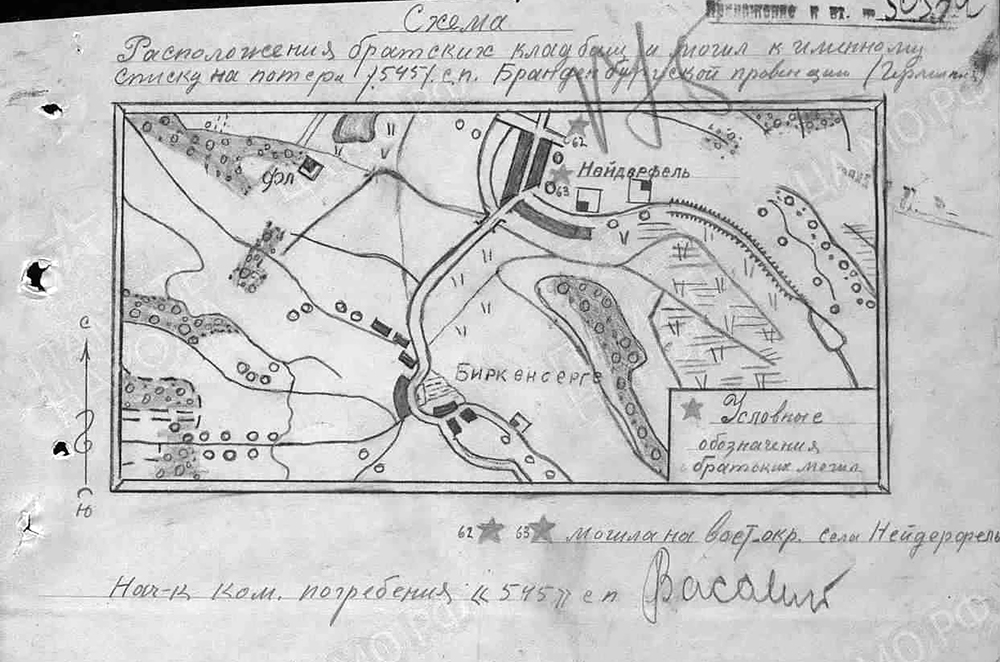 Приложение к вх. №
Схема
Расположения братских кладбищ и могил к именному
списку на потери /545/ с.п. Бранденбургской провинции /Германия/
62
Нейдерфель
63
Фл
С
Биркенсерге
Условные
обозначения
братских могил
Ю
62 63 Могила на вост. окр. села Нейдерфель
Нач-к ком. погребения «545» сп